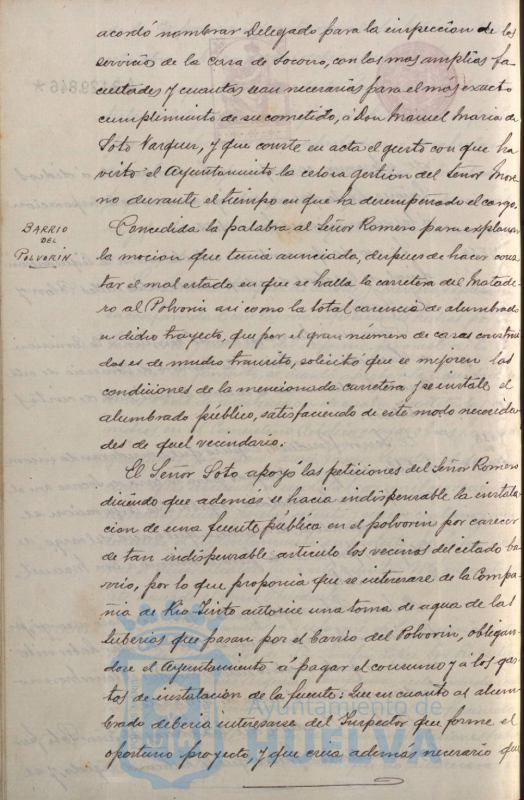 acordó nombrar Delegado para la inspeccion de los
servicios de la Casa de Socorro, con las mas amplias fa-
cultades y cuantas sean necesarias para el más exacto
cumplimiento de su cometido, á Don Manuel Maria de
Soto Vazquez, y que conste en acta el gusto con que ha
visto el Ayuntamiento la celosa gestión del Señor More-
no durante el tiempo en que ha desempeñado el cargo.
BARRIO
DEL
POLVORIN
Concedida la palabra al Señor Romero para explanar
la mocion que tenia anunciada, despues de hacer cons-
tar el mal estado en que se halla la carretera del Matade-
ro al Polvorin asi como la total carencia de alumbrado
en dicho trayecto, que por el gran número de casas construi-
das es de mucho transito, solicitó que se mejoren las
condiciones de la mencionada carretera y se instale el
alumbrado público, satisfaciendo de este modo necesida-
des de aquel vecindario.
El Señor Soto apoyó las peticiones del Señor Romero
diciendo que además se hacia indispensable la instala-
cion de una fuente pública en el polvorin por carecer
de tan indispensable articulo los vecinos del citado ba-
rrio, por lo que proponia que se interesare de la Compa-
ñia de Rio Tinto autorice una toma de agua de las
tuberias que pasan por el barrio del Polvorin, obligan-
dose el Ayuntamiento á pagar el consumo y á los gas-
tos de instalación de la fuente: Que en cuanto al alum-
brado deberia interesarse del Inspector que forme el
oportuno proyecto, y que creia además necesario que
Ayuntamiento de
HUELVA